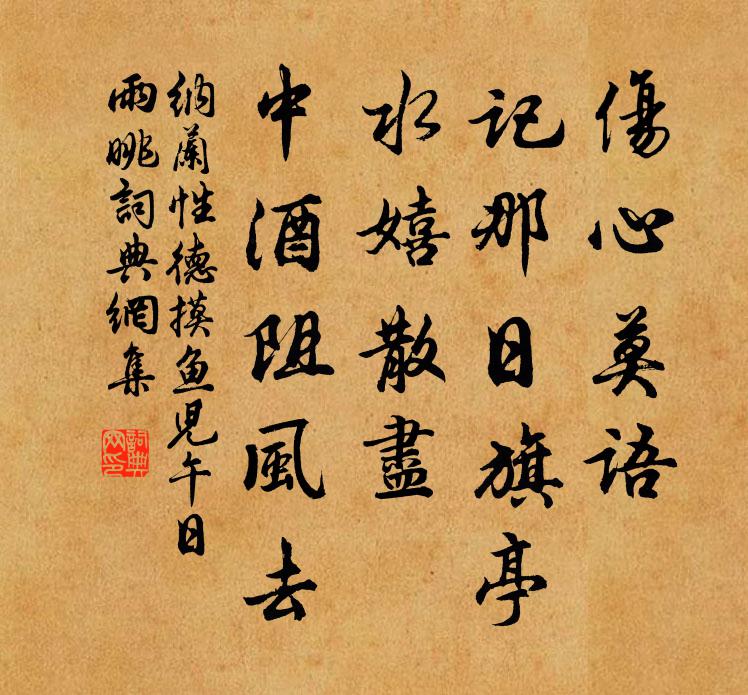 傷心莫語
記那日旗亭
水嬉散盡
中酒阻風去
納蘭性德摸魚兒午日
雨眺詞典網集
詞典網印